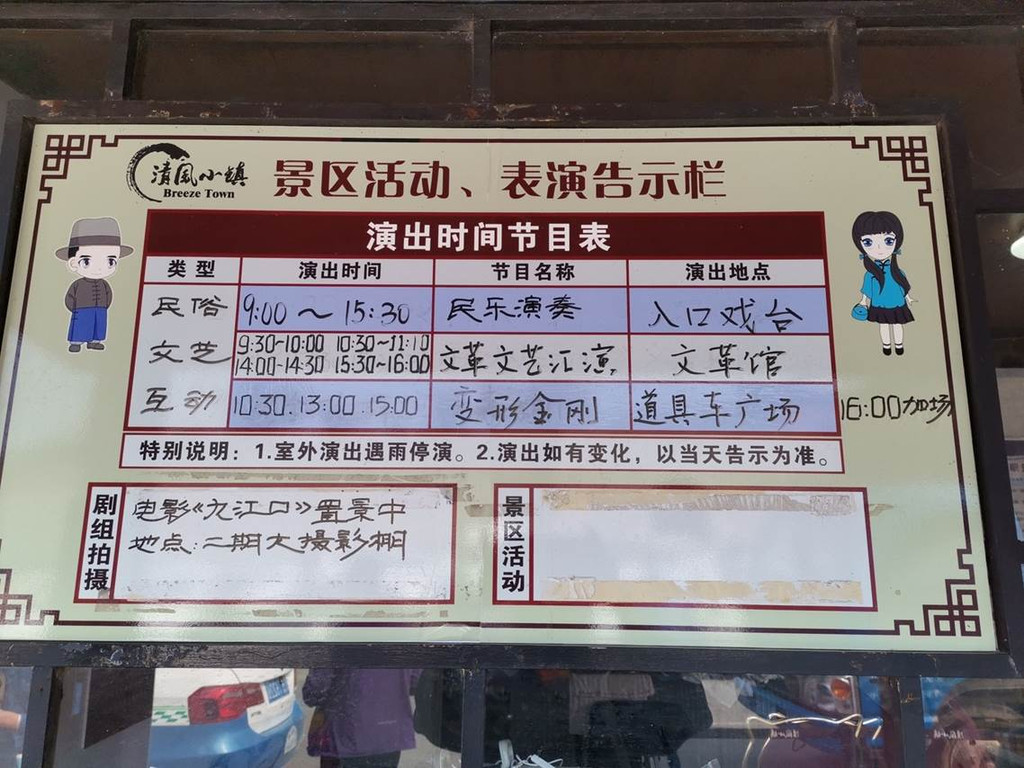 清風小镇
Breeze Town
景区活动、表演告示栏
演出时间节目表
类型 演出时间 节目名称 演出地点
民俗 9:00～15:30 民乐演奏 入口戏台
文艺 9:30~10:00 10:30~11:10 14:00-14:30 15:30~16:00 文革文艺汇演 文革馆
互动 10:30.13:00.15:00 变形金刚 道具车广场 16:00加场
特别说明：1.室外演出遇雨停演。2.演出如有变化，以当天告示为准。
剧组拍摄
电影《九江口》置景中
地点:二期大摄影棚
景区活动